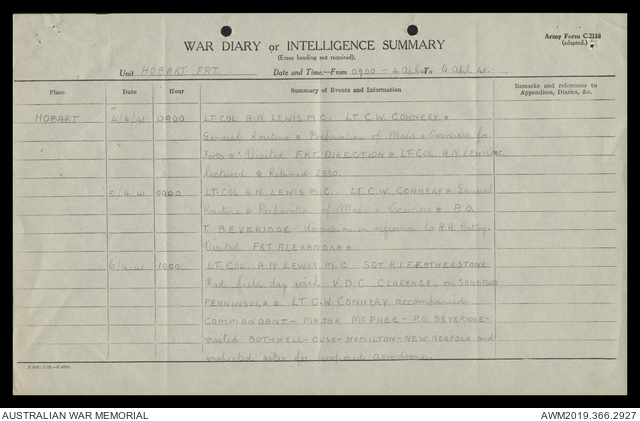 Army Form C.2118
(adapted.)
WAR DIARY or INTELLIGENCE SUMMARY
(Erase heading not required).
Unit HOBART FRT. Date and Time—From 0900 - 4 Apl To 6 Apl 41.
Place Date Hour Summary of Events and Information Remarks and references to Appendices, Diaries, &c.
HOBART 4/4/41 0900 LT. COL A.N LEWIS M.C. LT C.W. CONNERY
General Routine & Preparation of Maps & Exercises for
Visited FRT. DIRECTION LT. COL. A.N. LEWIS MC.
Lectured & Returned 2330.
5/4/41 0900 LT. COL A.N LEWIS M.C. LT C W CONNERY General
Routine & Preparation of Maps & Exercises P.O.
T. BEVERIDGE discussion in reference to A.A Battery.
Visited FRT ALEXANDRA
6/4/41 1000 LT COL. A.N LEWIS M.C. SGT. R.I. FEATHERSTONE
Had field day with V.D.C CLARENCE, on SANDFORD
PENNINSULA LT C.W. CONNERY accompanied
COMMANDANT - MAJOR McPHEE - P.O. BEVERIDGE -
visited BOTHWELL - OUSE - HAMILTON - NEW NORFOLK and
inspected sites for proposed aerodrome.
AUSTRALIAN WAR MEMORIAL AWM2019.366.2927